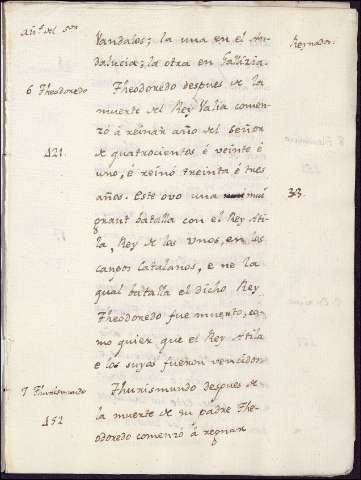 añ.º del S.or
Reynador.
Vandalos; la una en el An-
dalucia; la otra en Gallizia.
6 Theodoredo
Theodoredo despues de la
muerte del Rey Valia comen-
zó á reinar año del Señor
421.
de quatrocientos é veinte é
uno, é reinó treinta é tres
años. Este ovo una mui
33.
grant batalla con el Rey Ati-
la, Rey de los Unos, en los
campos Catalanos, e ne la
qual batalla el dicho Rey
Theodoredo fue muerto, co-
mo quier que el Rey Atila
e los suyos fueron vencidos.
7 Thurismundo
Thurismundo despues de
la muerte de su padre The-
452
odoredo comenzó á regnar